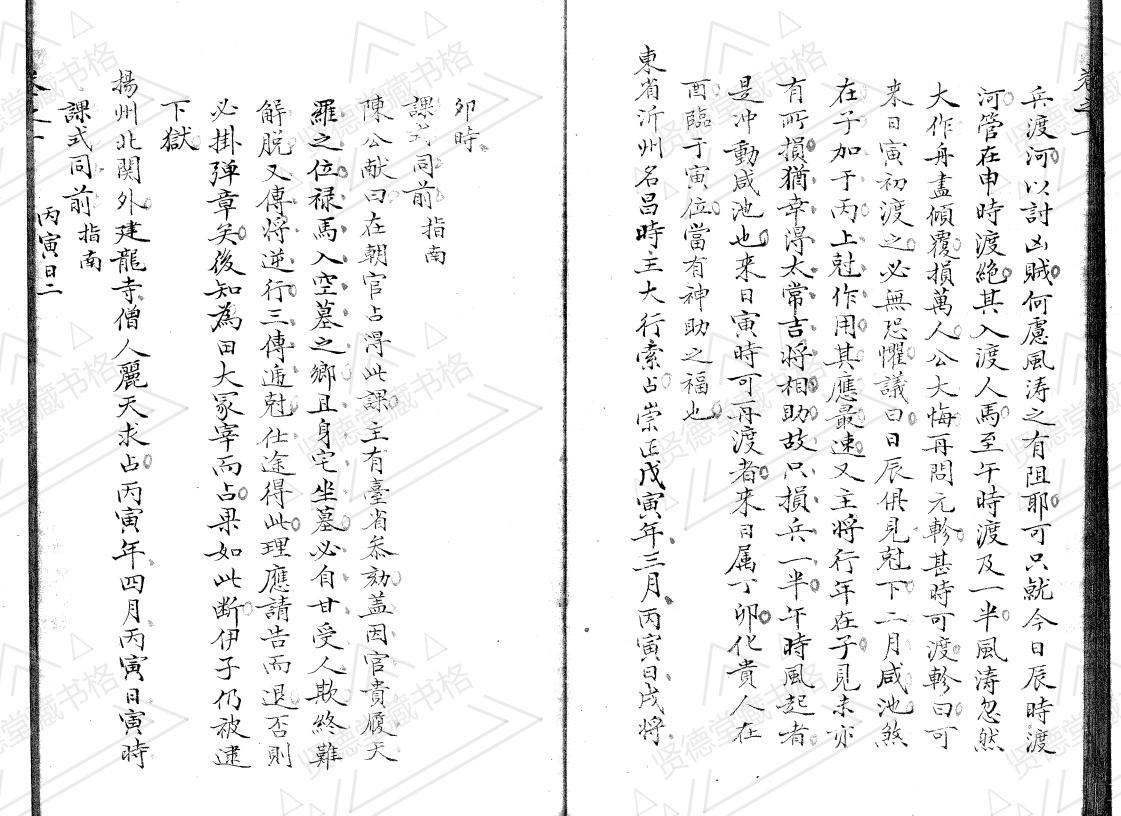 卷之一
兵渡河以討凶賊何慮風涛之有阻耶可只就今日辰時渡
河管在申時渡絕其入渡人馬至午時渡及一半風涛忽然
大作舟盡傾覆損萬人公大悔再問元軫甚時可渡軫曰可
来日寅初渡之必無恐懼議曰日辰俱見尅下二月咸池煞
在子加于丙上尅作用其應最速又主將行年在子見未亦
有所損猶幸淂太常吉將相助故只損兵一半午時風起者
是冲動咸池也来日寅時可再渡者来日属丁卯化貴人在
酉臨于寅位當有神助之福也
東省沂州名昌時主大行索占崇正戊寅年三月丙寅日戌将
卯時
課式同前 指南
陳公献曰在朝官占淂此課主有臺省叅劾盖因官貴履天
羅之位禄馬入空墓之鄉且身宅坐墓必自甘受人欺終難
解脱又傳将逆行三傳遁尅仕途得此理應請告而退否則
必掛弹章矣後知為田大冢宰而占果如此断伊子仍被逮
下獄
揚州北関外建龍寺僧人麗天求占丙寅年四月丙寅日寅時
課式同前 指南
卷之一
丙寅日二
贤德堂藏书格